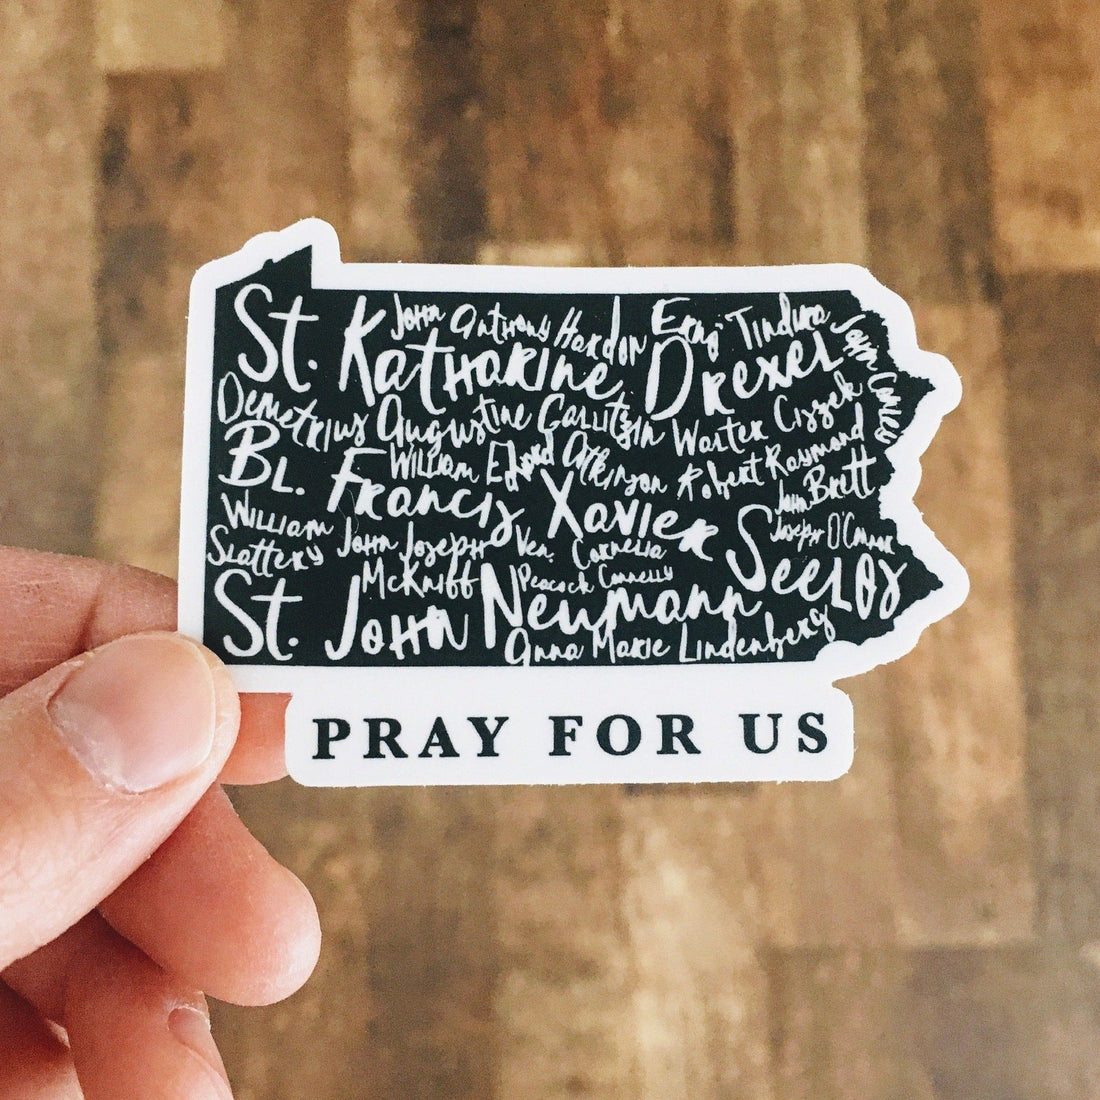 John Anthony Hardon
St. Katharine Drexel
John Conley
Demetrius Augustine Gallitzin
Walter Ciszek
William Edward Atkinson
Robert Raymond Brett
Bl. Francis Xavier Seelos
John Joseph O'Connor
William Slattery
John Joseph McKniff
Ven. Cornelia Peacock Connelly
St. John Neumann
Anna Marie Lindenberg
PRAY FOR US